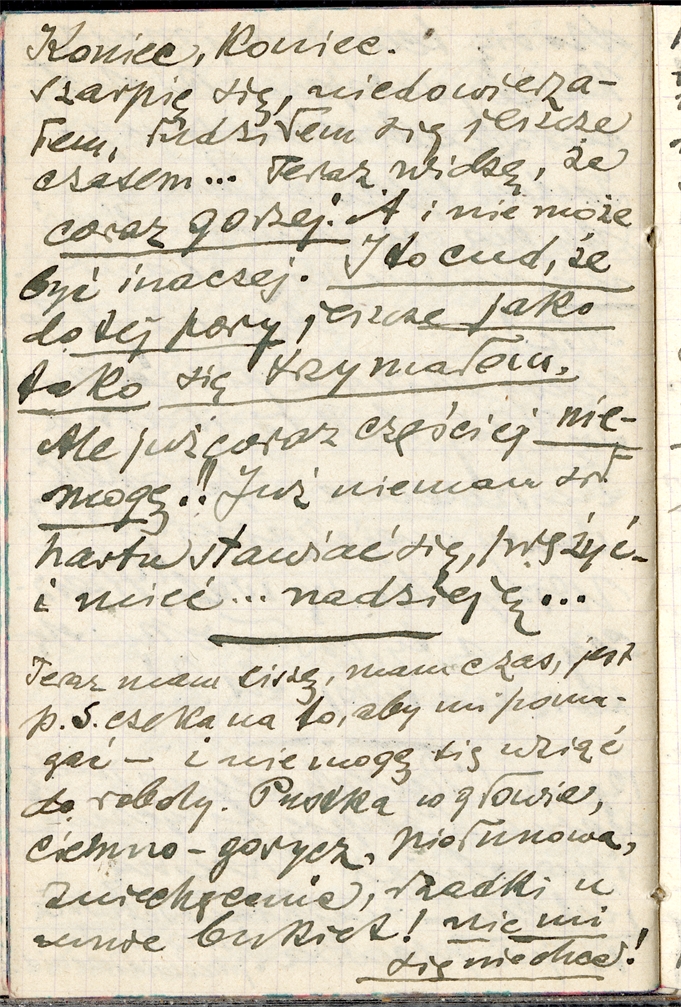 Koniec, Koniec.
szarpię się, niedowierza-
łem, łudziłem się jeszcze
czasem... Teraz widzę, że
coraz gorzej. A i nie może
być inaczej. I to cud, że
do tej pory jeszcze jako
tako się trzymałem.
Ale już coraz częściej nie-
mogę!! Już niemam sił
hartu stawiać się, prężyć-
i mieć... nadzieję...
Teraz mam ciszę, mam czas, jest
p. S. czeka na to, aby mi poma-
gać - i nie mogę się wziąć
do roboty. Pustka w głowie,
ciemno - gorycz, piołunowa,
zniechęcenie, rzadki u
mnie bukiet! nie mi
się niechce!